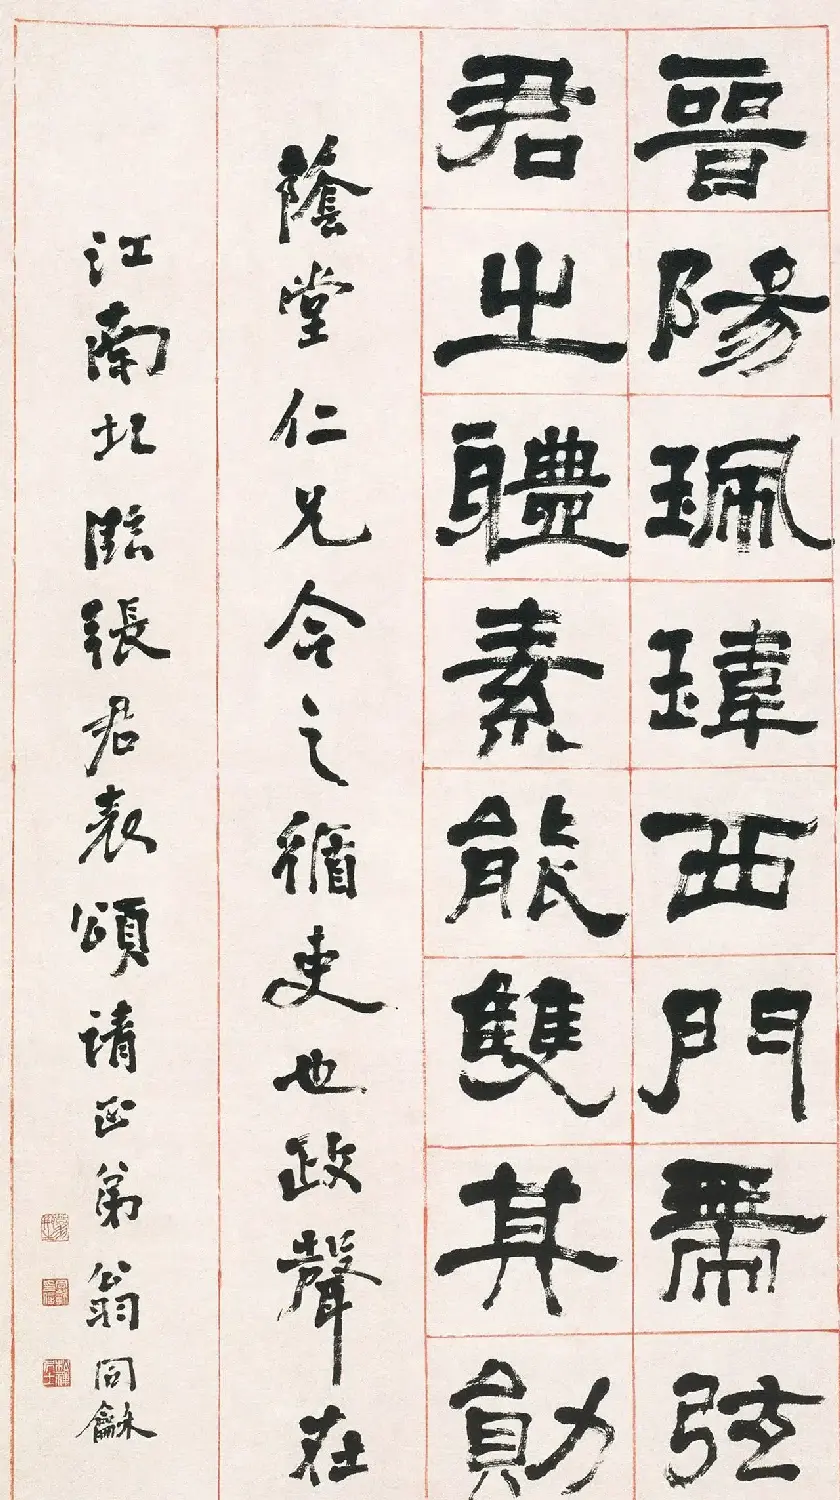 晉陽珮瑋西門帶弦
君之體素能雙其勛
隂堂仁兄今之循吏也政聲在
江南北臨張君表頌請正弟翁同龢